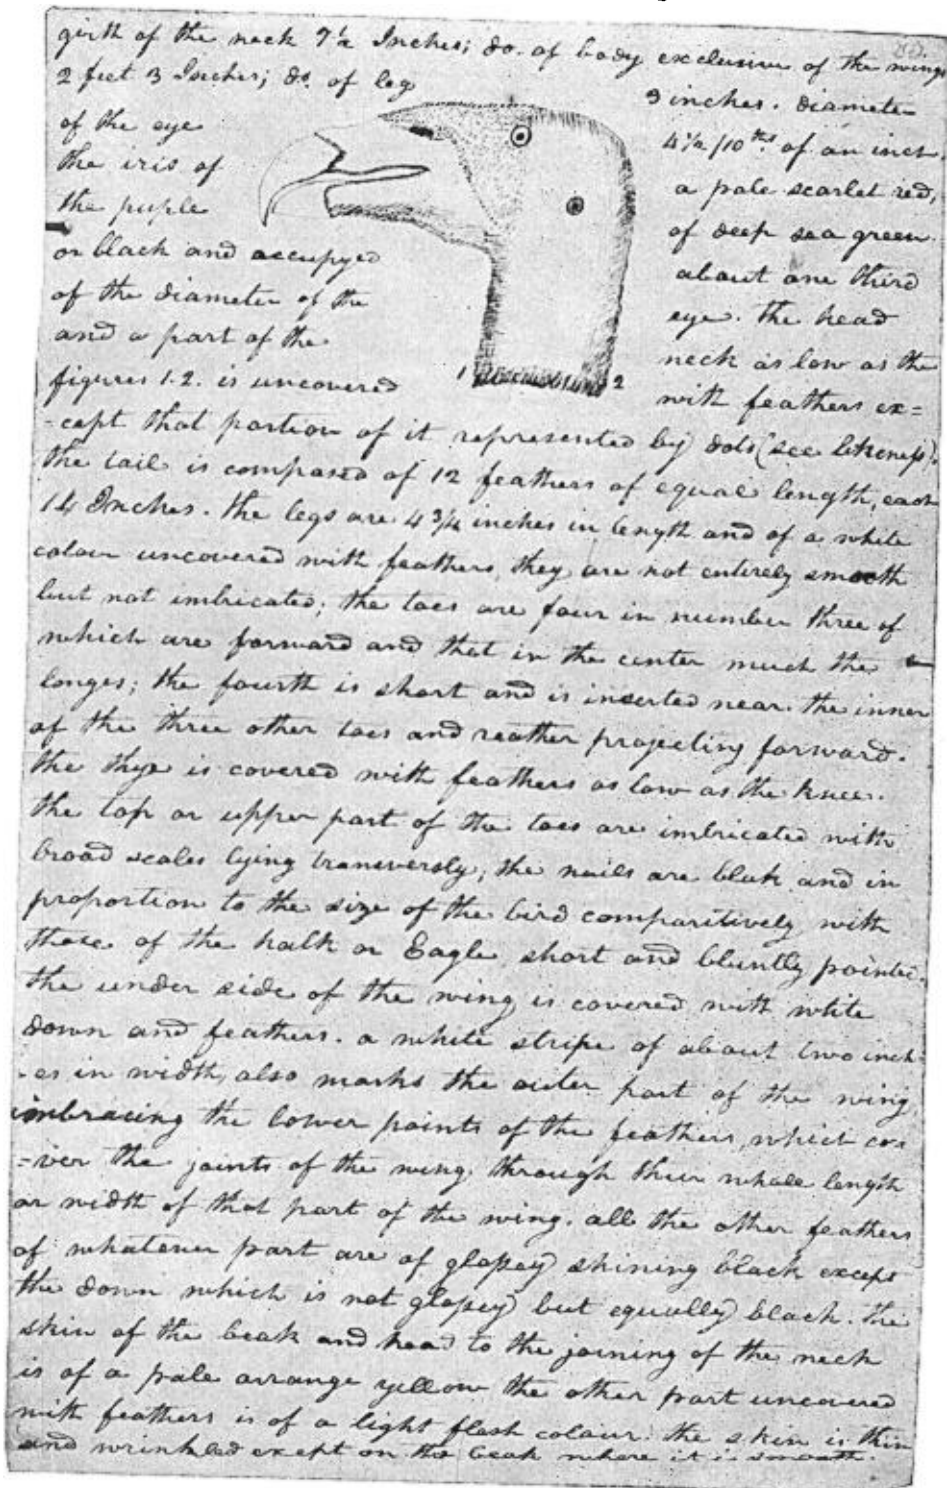 girth of the neck 7½ Inches; do. of body exclusive of the wings
2 feet 3 Inches; do. of leg 3 inches. diameter
of the eye 4½/10ths of an inch,
the iris of a pale scarlet red,
the puple of deep sea green
or black and occupyed about one third
of the diameter of the eye. the head
and a part of the neck as low as the
figures 1.2. is uncovered with feathers ex=
1 2
=cept that portion of it represented by dots (see likeness).
the tail is composed of 12 feathers of equal length, each
14 Inches. the legs are 4¾ inches in length and of a white
colour uncovered with feathers, they are not entirely smooth
but not imbricated; the toes are four in number three of
which are forward and that in the center much the
longes; the fourth is short and is inserted near the inner
of the three other toes and reather projecting forward.
the thye is covered with feathers as low as the knee.
the top or upper part of the toes are imbricated with
broad scales lying transversly; the nails are blak and in
proportion to the size of the bird comparitively with
those of the halk or Eagle, short and bluntly pointed.
the under side of the wing is covered with white
down and feathers. a white stripe of about two inch-
-es in width, also marks the outer part of the wing,
imbracing the lower points of the feathers, which co=
=ver the joints of the wing through their whole length
or width of that part of the wing. all the other feathers
of whatever part are of glossey shining black except
the down which is not glossey but equally black. the
skin of the beak and head to the joining of the neck
is of a pale orrange yellow the other part uncovered
with feathers is of a light flesh colour. the skin is thin
and wrinkled except on the beak where it is smooth.